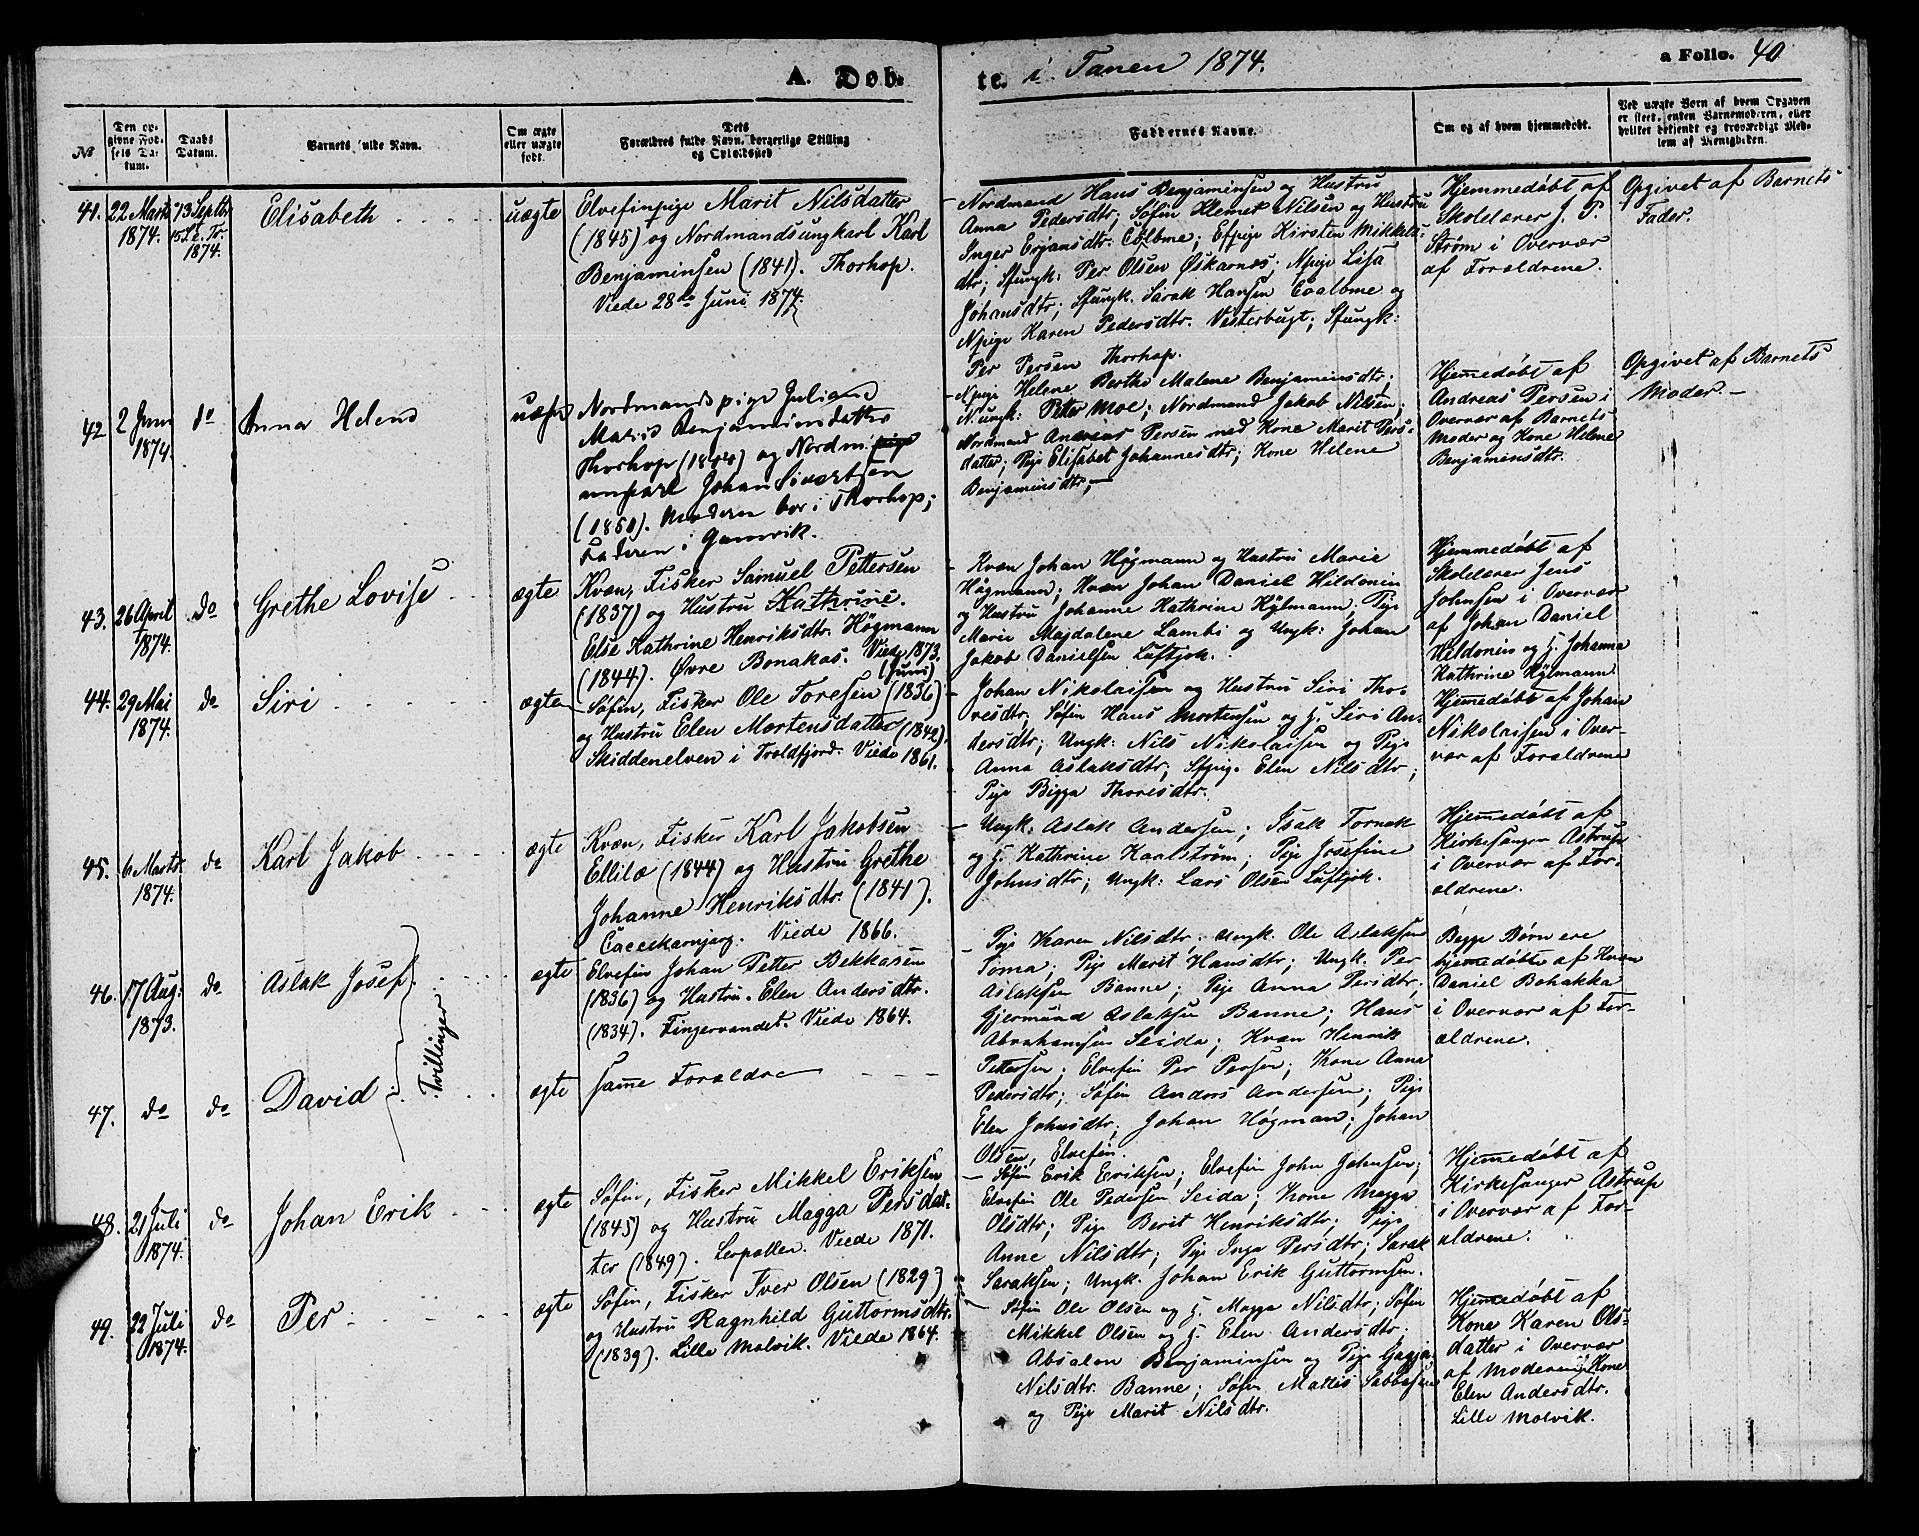 A. Døb- te. i Tanen 1874. a Folio. 40
No
Den op-
givne Fød-
sels Da-
tum.
Daabs
Datum.
Barnets fulde Navn.
Om ægte
eller uægte
født.
Dets
Forældres fulde Navn, borgerlige Stilling
og Opholdssted
Faddernes Navne.
Om og af hvem hjemmedøbt.
Ved uægte Børn af hvem Opgaven
er skeet, enten Barnemoderen, eller
hvilket bekjendt og troværdigt Med-
lem af Menigheden.
41. 22 Marts
1874.
13 Septbr
15 S. e. Tr.
1874.
Elisabeth
uægte
Elvefinpige Marit Nilsdatter
(1845) og Nordmandsungkarl Karl
Benjaminsen (1841). Thorhop.
Viede 28de Juni 1874.
Nordmand Hans Benjaminsen og Hustru
Anna Pedersdtr; Søfin Klemet Nilsen og Hustru
Inger Erjansdtr. Coalbme; Efpige Kirsten Mikkels-
dtr; Sfungk: Per Olsen Øskarnæs; Npige Lisa
Johansdtr; Sfungk. Sarak Hansen Coalbme og
Npige Karen Pedersdtr. Vesterbugt; Sfungk:
Per Persen Thorhop.
Hjemmedøbt af
Skolelærer J. P.
Strøm i Overvær
af Forældrene.
Opgivet af Barnets
Fader.
42 2 Juni
1874.
do
Anna Helene
uægte
Nordmandspige Juliane
Marie Benjaminsdatter
Thorhop (1844) og Nordm. pige
ungkarl Johan Sivertsen
(1851). Moderen bor i Thorhop;
Faderen i Gamvik.
Npige Helene Berthe Malene Benjaminsdtr;
N.ungk: Petter Moe; Nordmand Jakob Nilsen;
Nordmand Andreas Persen med Kone Marit Pers-
datter; Pige Elisabet Johannesdtr; Kone Helene
Benjaminsdtr;
Hjemmedøbt af
Andreas Persen i
Overvær af Barnets
Moder og Kone Helene
Benjaminsdtr.
Opgivet af Barnets
Moder.
43. 26 April
1874.
do
Grethe Lovise
ægte
Kvæn, Fisker Samuel Pettersen
(1837) og Hustru Kathrine.
Else Kathrine Henriksdtr. Högmann
(1844). Øvre Bonakas. Viede 1873.
(Juni)
Kvæn Johan Högmann og Hustru Marie
Högmann; Kvæn Johan Daniel Hildonin
og Hustru Johanne Kathrine Hylmann. Pige
Marie Magdalene Lambi og Ungk: Johan
Jakob Danielsen Luftjok.
Hjemmedøbt af
Skolelærer Jens
Johnsen i Overvær
af Johan Daniel
Hildonin og H. Johanna
Kathrine Hylmann
44. 29 Mai
1874.
do
Siri
ægte
Søfin, Fisker Ole Toresen (1836)
og Hustru Elen Mortensdatter (1842).
Skiddenelven i Troldfjord. Viede 1861.
Johan Nikolaisen og Hustru Siri Tho-
resdtr; Søfin Hans Mortensen og H. Siri An-
dersdtr; Ungk: Nils Nikolaisen og Pige
Anna Aslaksdtr; Sfpig. Elen Nilsdtr;
Pige Bigga Thoresdtr.
Hjemmedøbt af Johan
Nikolaisen i Over-
vær af Forældrene
45. 6 Marts
1874.
do
Karl Jakob
ægte
Kvæn, Fisker Karl Jakobsen
Ellilæ (1844) og Hustru Grethe
Johanne Henriksdtr. (1841).
Viede 1866.
Ungk: Aslak Andersen; Isak Tornek
og H. Kathrine Kaalstrøm; Pige Josefine
Johnsdtr; Ungk: Lars Olsen Luftjok.
Hjemmedøbt af
Kirkesanger Astrup
i Overvær af For-
ældrene.
46. 17 Aug:
1873.
do
Aslak Josef
Tvillinger
ægte
Elvefin Johan Petter Bekkasen
(1836) og Hustru. Elen Andersdtr.
(1834). Fingervandet. Viede 1864.
Pige Karen Nilsdtr. Ungk. Ole Aslaksen
Soma; Pige Marit Hansdtr; Ungk. Per
Aslaksen Banne; Pige Anna Persdtr;
Gjermund Aslaksen Banne; Hans
Abrahamsen Seida; Kvæn Henrik
Pettersen; Elvefin Per Persen; Kone Anna
Pedersdtr; Søfin Anders Andersen; Pige
Elen Johnsdtr; Johan Högman; Johan
Olsen, Elvefin.
Begge Børn ere
hjemmedøbte af Kvæn
Daniel Bohakka
i Overvær af For-
ældrene.
47. do do
David
ægte
samme Forældre
48. 21 Juli
1874.
do
Johan Erik
ægte
Søfin, Fisker Mikkel Eriksen
(1845) og Hustru Magga Persdat-
ter (1849). Lerpollen. Viede 1871.
Søfin Erik Eriksen; Elvefin John Johnsen;
Elvefin Ole Pedersen Seida; Kone Magga
Olsdtr; Pige Berit Henriksdtr; Pige
Anne Nilsdtr; Pige Inga Persdtr; Sarak
Saraksen; Ungk. Johan Erik Guttormsen.
Hjemmedøbt af
Kirkesanger Astrup
i Overvær af For-
ældrene.
49. 22 Juli
1874.
do
Per
ægte
Søfin, Fisker Iver Olsen (1829)
og Hustru Ragnhild Guttormsdtr
(1839). Lille Molvik. Viede 1864.
Søfin Ole Olsen og H. Magga Nilsdtr; Søfin
Mikkel Olsen og H. Elen Andersdtr.
Absalon Benjaminsen og Pige Gagja
Nilsdtr. Banne; Søfin Mattis Sabbasen
og Pige Marit Nilsdtr.
Hjemmedøbt af
Kone Karen Ols-
datter i Overvær
af Moderen og Kone
Elen Andersdtr.
Lille Molvik.